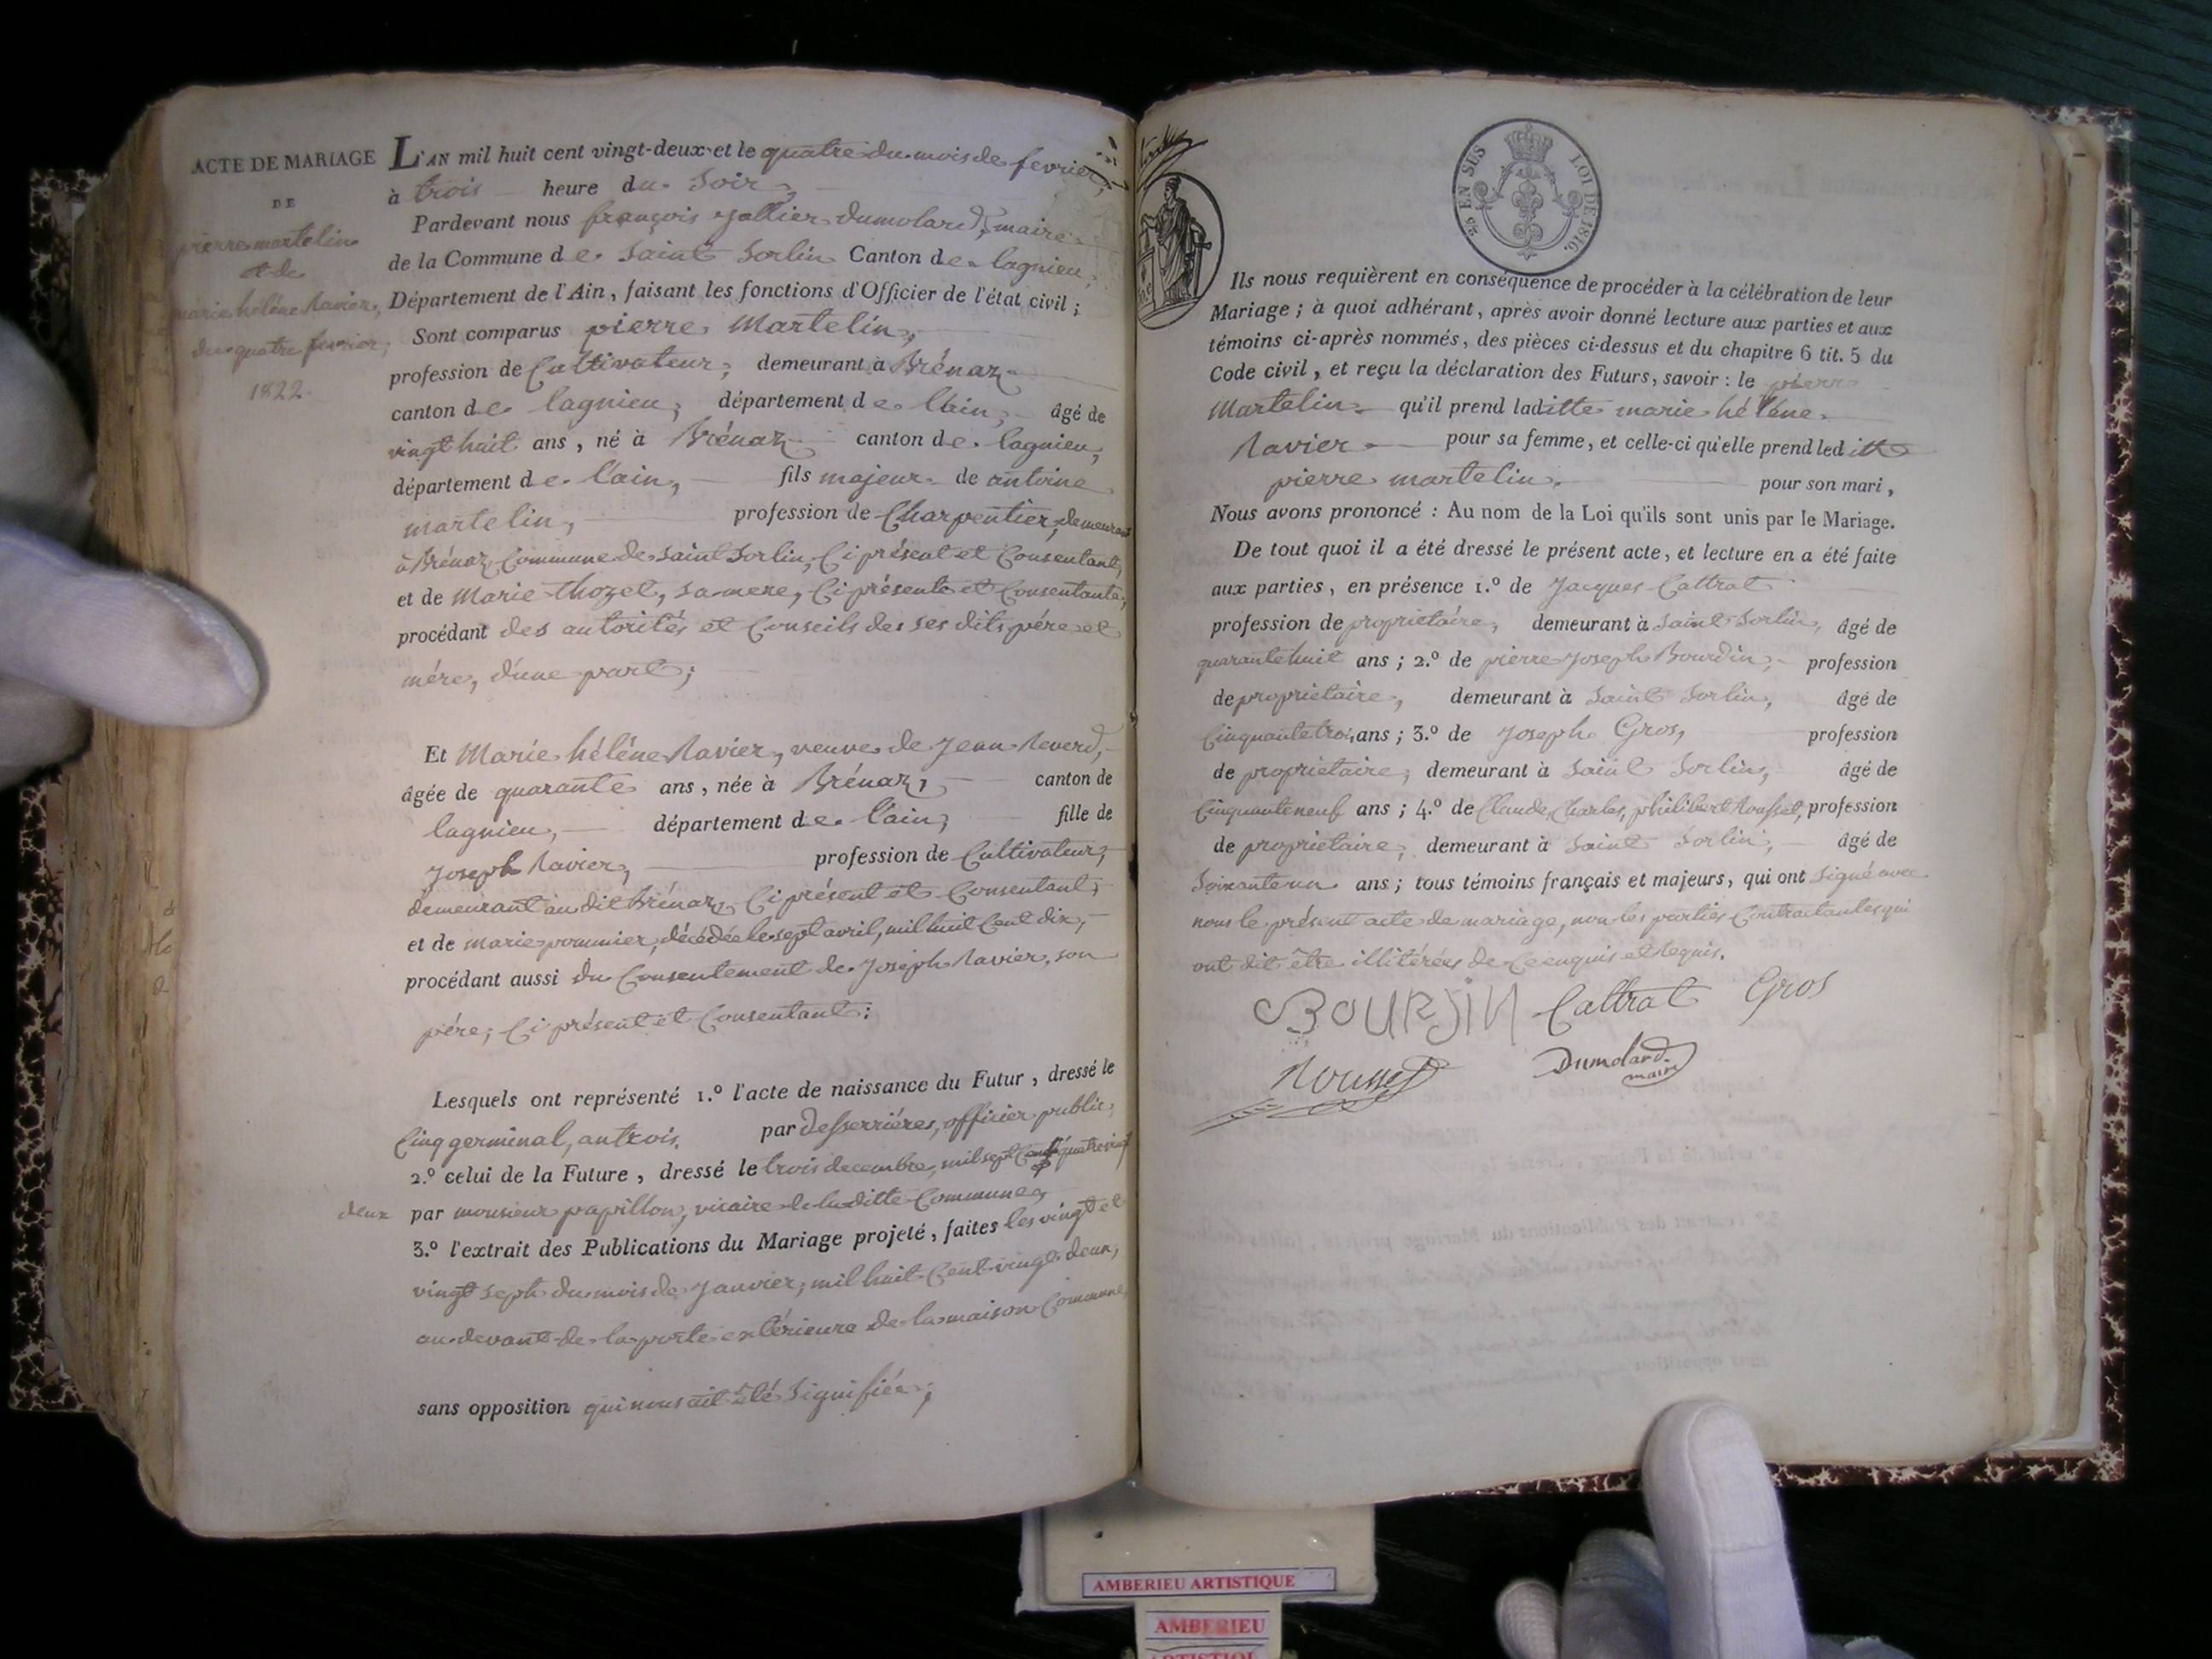 ACTE DE MARIAGE
DE
pierre martelin
et de
marie hélène Ravier,
du quatre fevrier,
1822.
L'AN mil huit cent vingt-deux et le quatre du mois de fevrier,
à trois heure du Soir,
Pardevant nous françois Jallier dumolard, maire
de la Commune de Saint Sorlin Canton de lagnieu,
Département de l'Ain, faisant les fonctions d'Officier de l'état civil ;
Sont comparus pierre Martelin,
profession de Cultivateur, demeurant à Brénaz
canton de lagnieu, département de lain, âgé de
vingt huit ans, né à Brénaz canton de lagnieu,
département de lain, fils majeur de antoine
martelin, profession de Charpentier, demeurant
à Brénaz Commune de Saint Sorlin, Ci présent et Consentant,
et de Marie thozet, sa mere, Ci présente et Consentante,
procédant des autorités et Conseils des ses dits pére et
mére, d'une part ;
Et Marie hélène Ravier, veuve de Jean Reverd,
âgée de quarante ans, née à Brénaz, canton de
lagnieu, département de l'ain, fille de
Joseph Ravier, profession de Cultivateur,
demeurant au dit Brénaz Ci présent et Consentant,
et de marie pommier, décédée le sept avril, mil huit Cent dix,
procédant aussi du Consentement de Joseph Ravier, son
pére, Ci présent et Consentant ;
Lesquels ont représenté 1.º l'acte de naissance du Futur, dressé le
Cinq germinal, an trois, par desserriéres, officier public,
2.º celui de la Future, dressé le trois decembre, mil sept Cent quatre vingt
deux par monsieur papillon, vicaire de laditte Commune,
3.º l'extrait des Publications du Mariage projeté, faites les vingt et
vingt sept du mois de Janvier, mil huit Cent vingt deux,
au devant de la porte extérieure de la maison Commune
sans opposition qui nous ait été Signifiée ;
25 EN SUS LOI DE 1816.
Ils nous requièrent en conséquence de procéder à la célébration de leur
Mariage ; à quoi adhérant, après avoir donné lecture aux parties et aux
témoins ci-après nommés, des pièces ci-dessus et du chapitre 6 tit. 5 du
Code civil, et reçu la déclaration des Futurs, savoir : le pierre
Martelin qu'il prend laditte marie hélène
Ravier pour sa femme, et celle-ci qu'elle prend leditt
pierre martelin, pour son mari,
Nous avons prononcé : Au nom de la Loi qu'ils sont unis par le Mariage.
De tout quoi il a été dressé le présent acte, et lecture en a été faite
aux parties, en présence 1.º de Jacques Cattrat
profession de proprietaire, demeurant à Saint Sorlin, âgé de
quarante huit ans ; 2.º de pierre Joseph Bourdin, profession
de proprietaire, demeurant à Saint Sorlin, âgé de
Cinquante trois ans ; 3.º de Joseph Gros, profession
de proprietaire, demeurant à Saint Sorlin, âgé de
Cinquante neuf ans ; 4.º de Claude, Charles, philibert Rousset, profession
de proprietaire, demeurant à Saint Sorlin, âgé de
Soixante un ans ; tous témoins français et majeurs, qui ont Signé avec
nous le présent acte de mariage, non les parties Contractantes qui
ont dit être illitérées de Ce enquis et Requis.
BOURDIN Cattrat Gros
Rousset Dumolard.
maire
AMBERIEU ARTISTIQUE
AMBERIEU
ARTISTIQUE